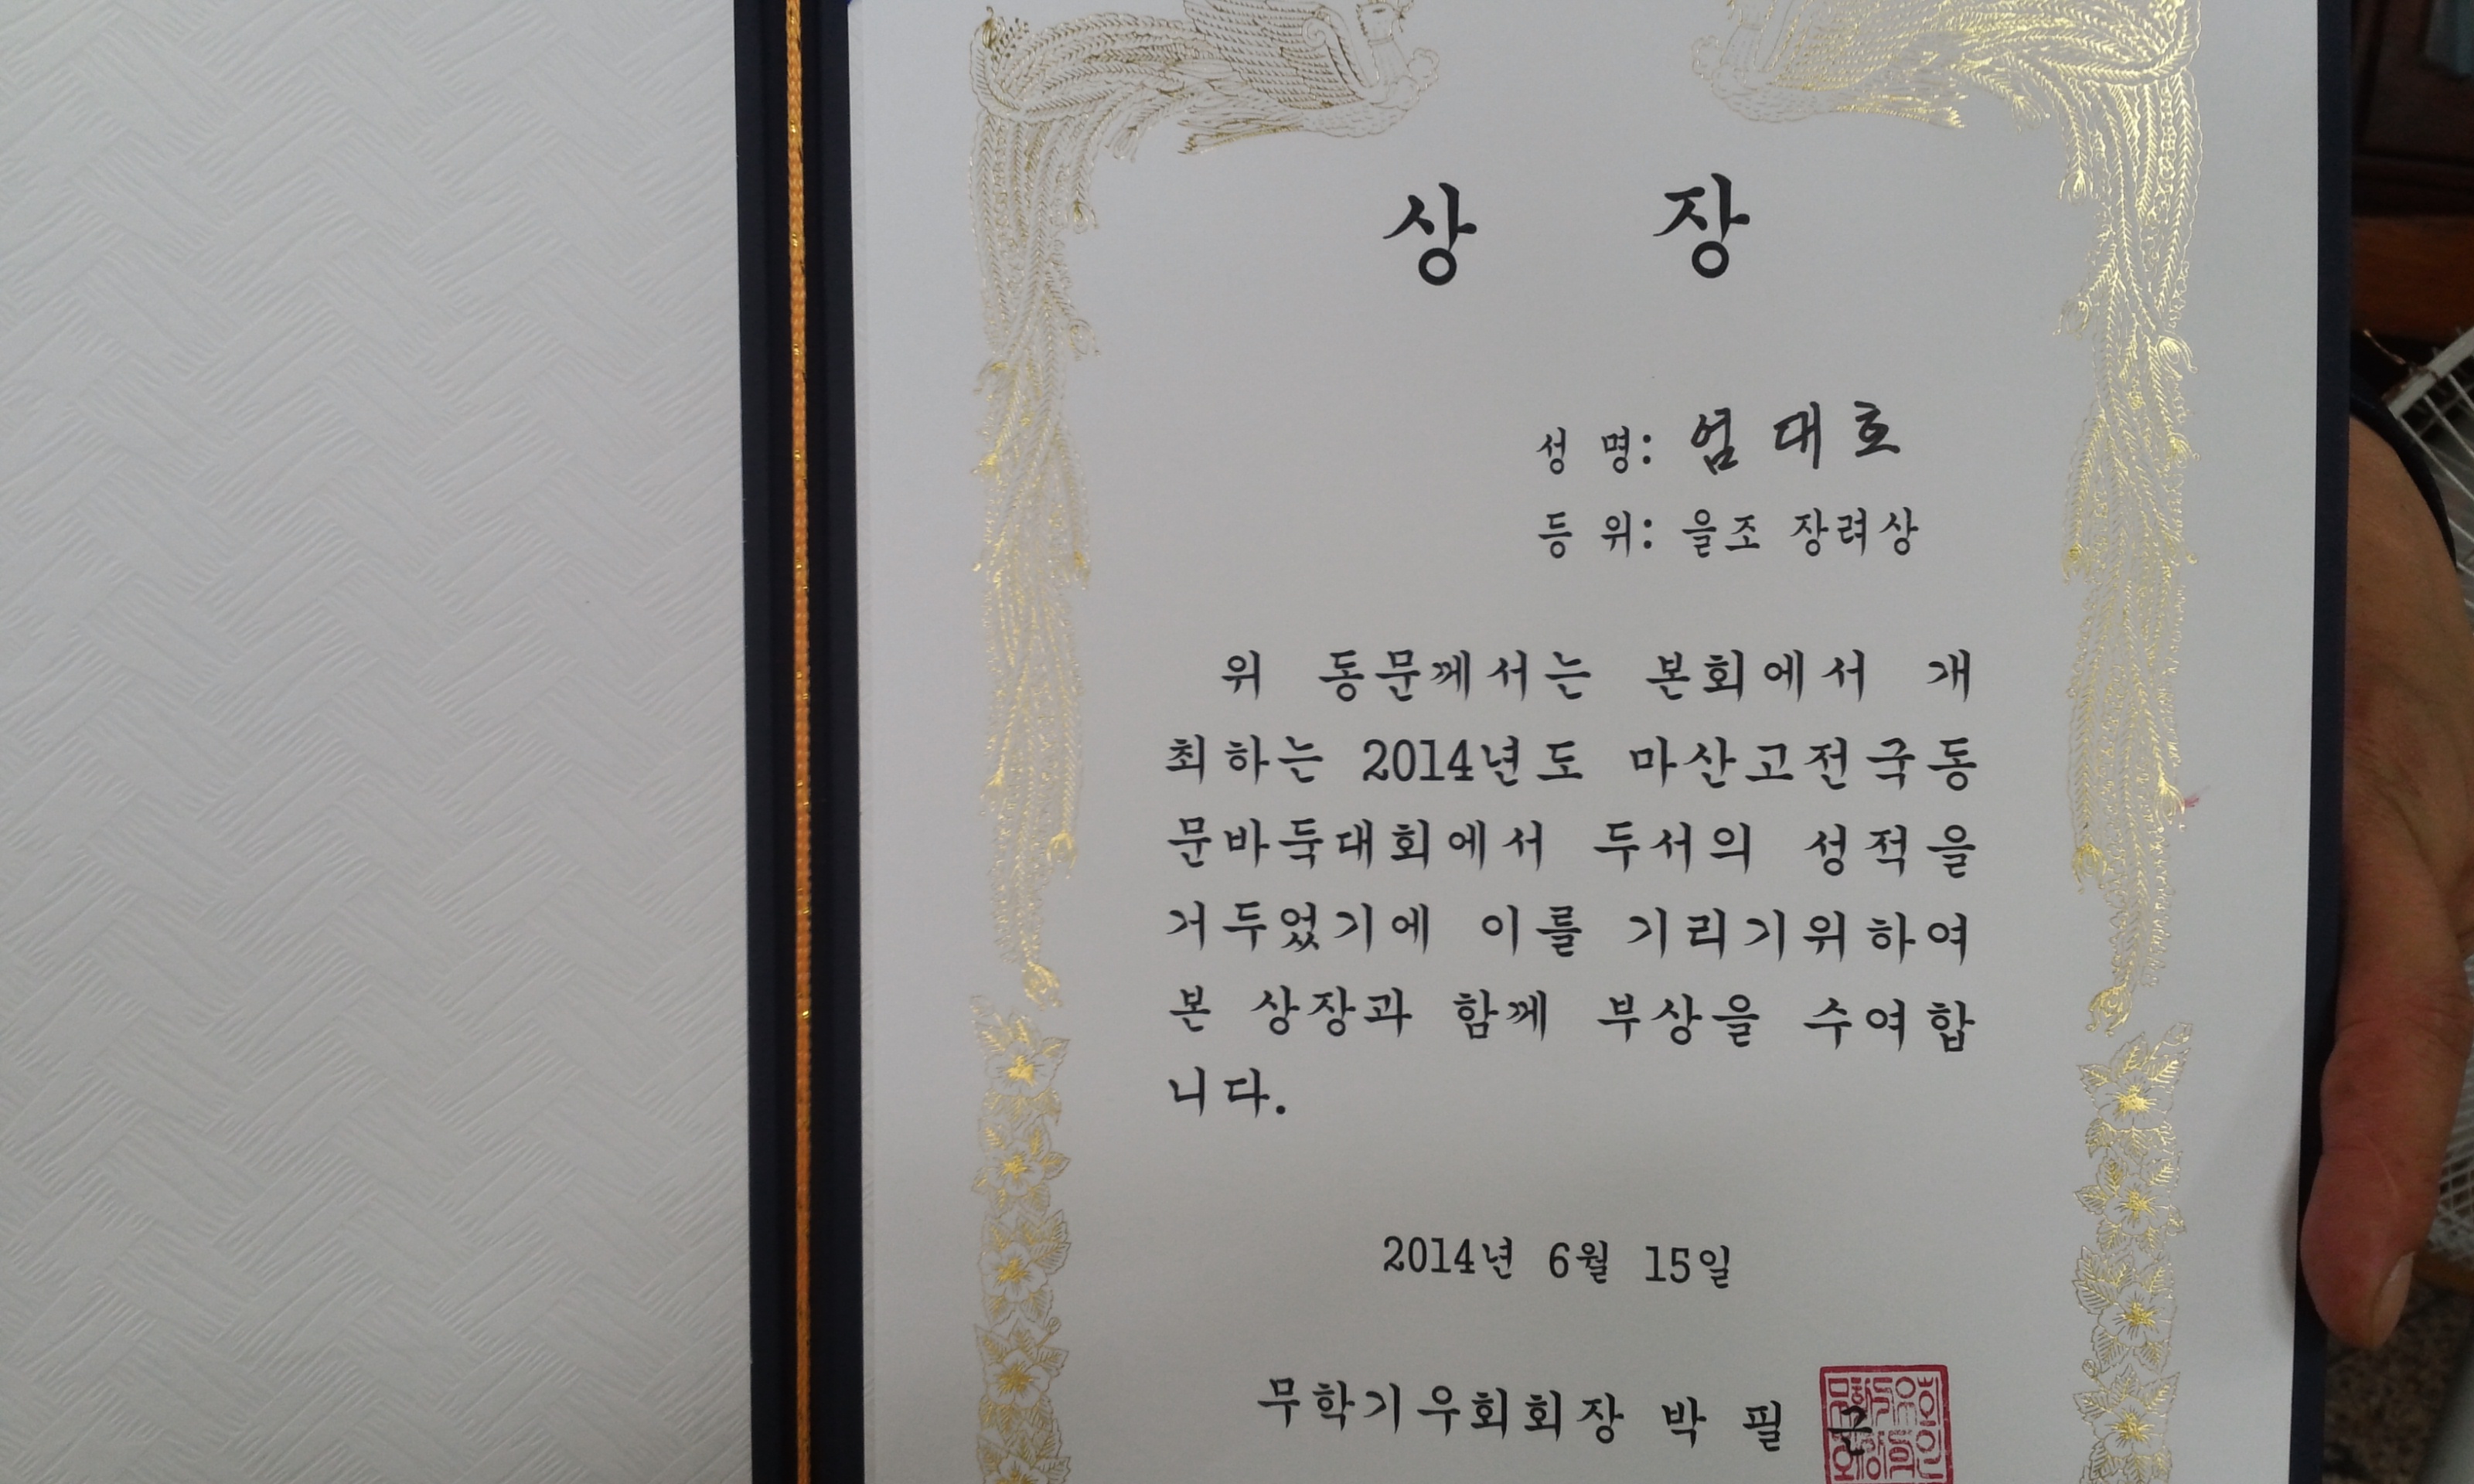 상 장
성 명: 엄 대 호
등 위: 을조 장려상
위 동문께서는 본회에서 개
최하는 2014년도 마산고전국동
문바둑대회에서 두서의 성적을
거두었기에 이를 기리기위하여
본 상장과 함께 부상을 수여합
니다.
2014년 6월 15일
무학기우회회장 박 필 근